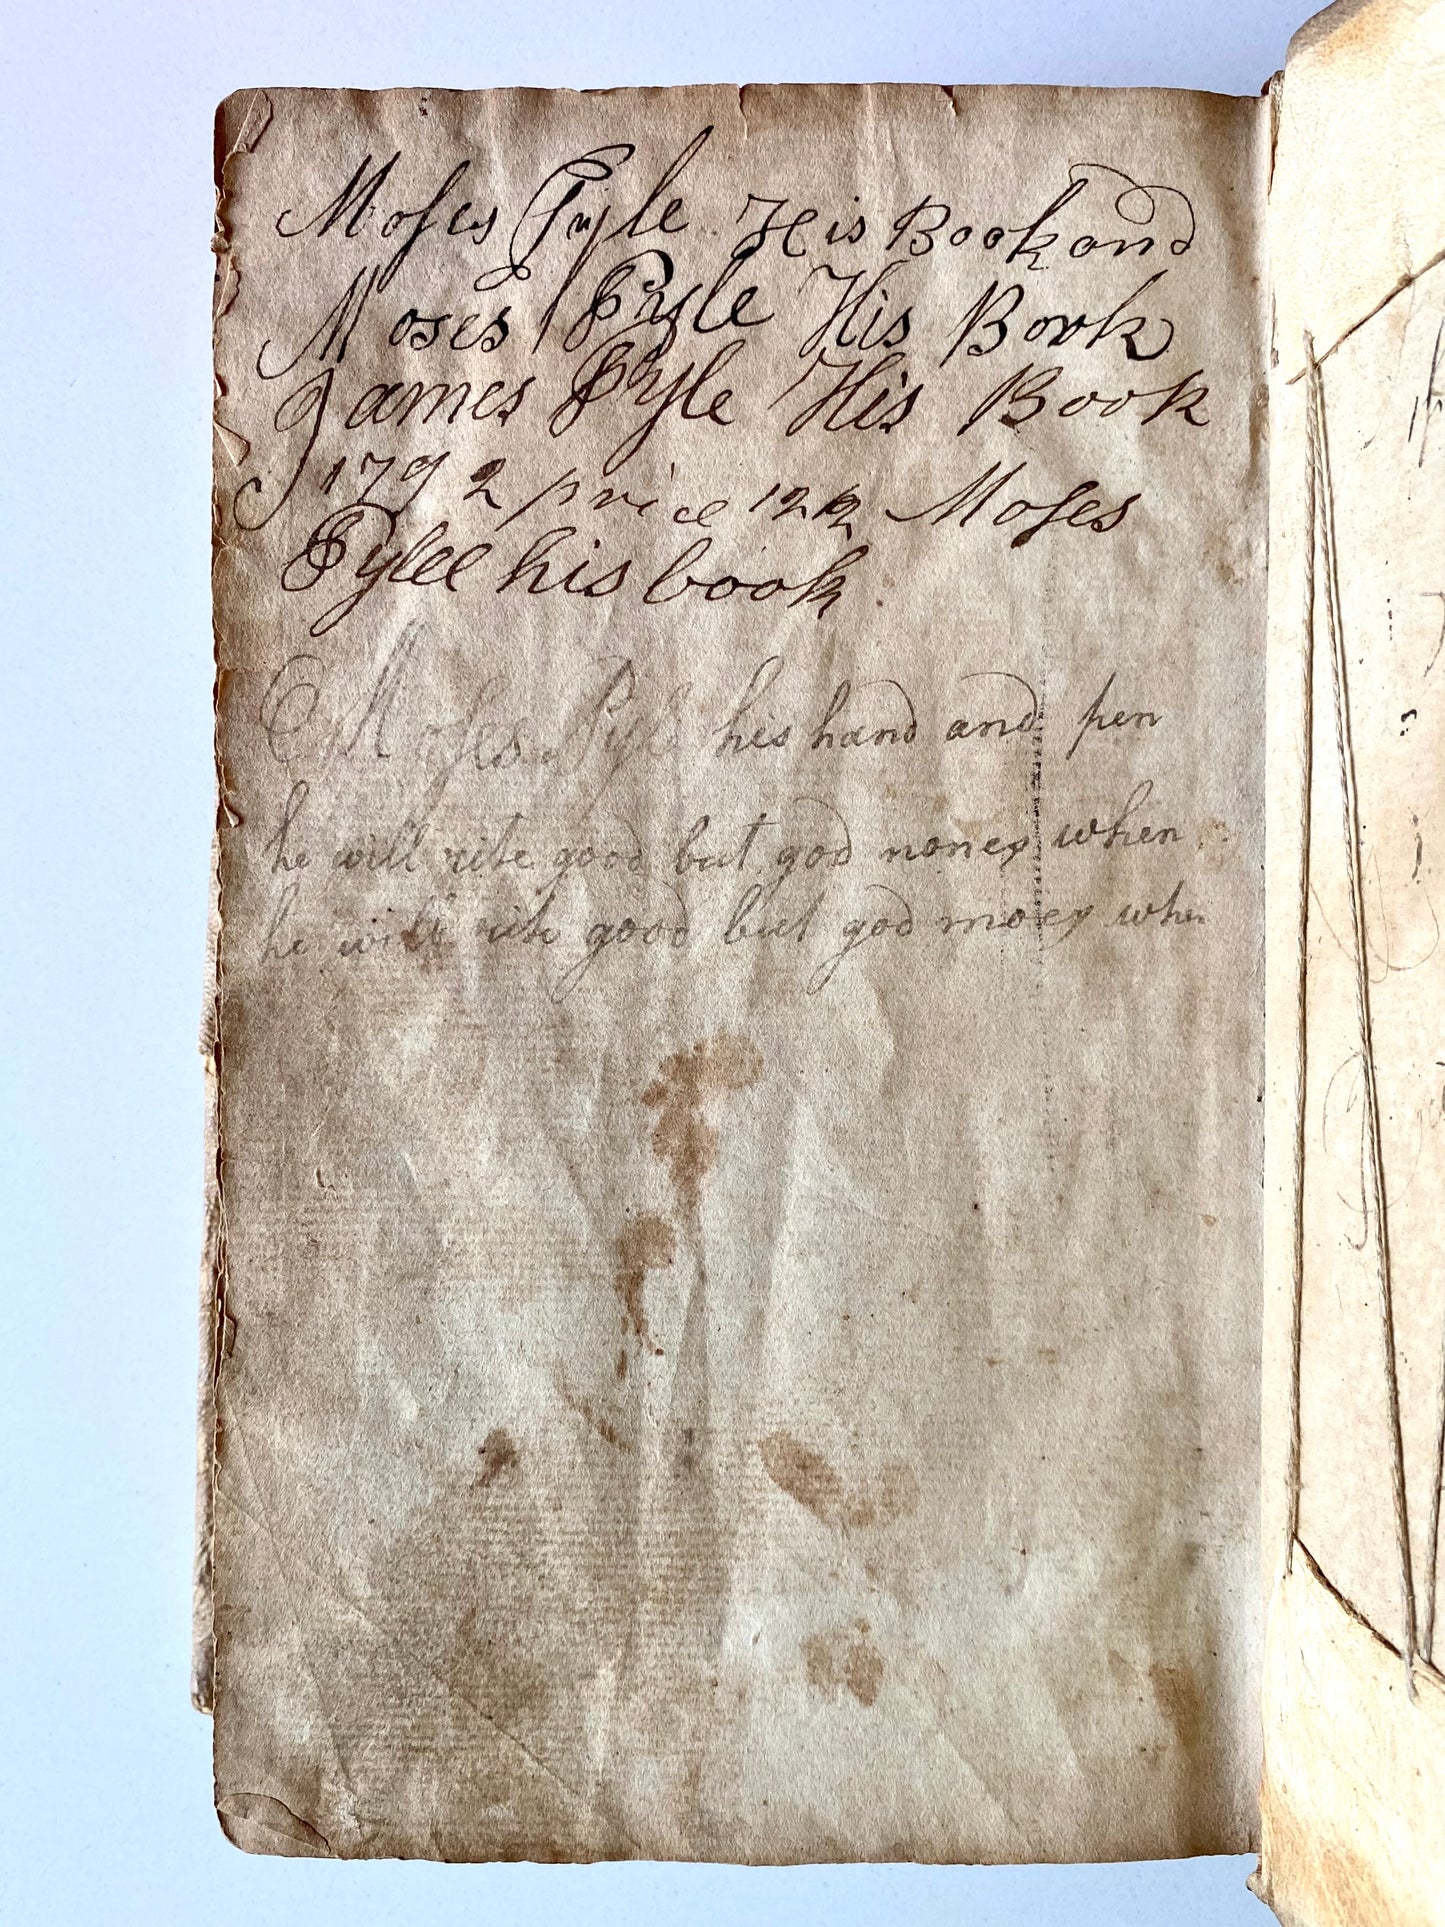 Moſes Pyle His Book and
Moses Pyle His Book
James Pyle His Book
1792 price Moſes
Pylee his book
Moſes Pyle his hand and pen
he will rite good but god noney when
he will rite good but god moey when